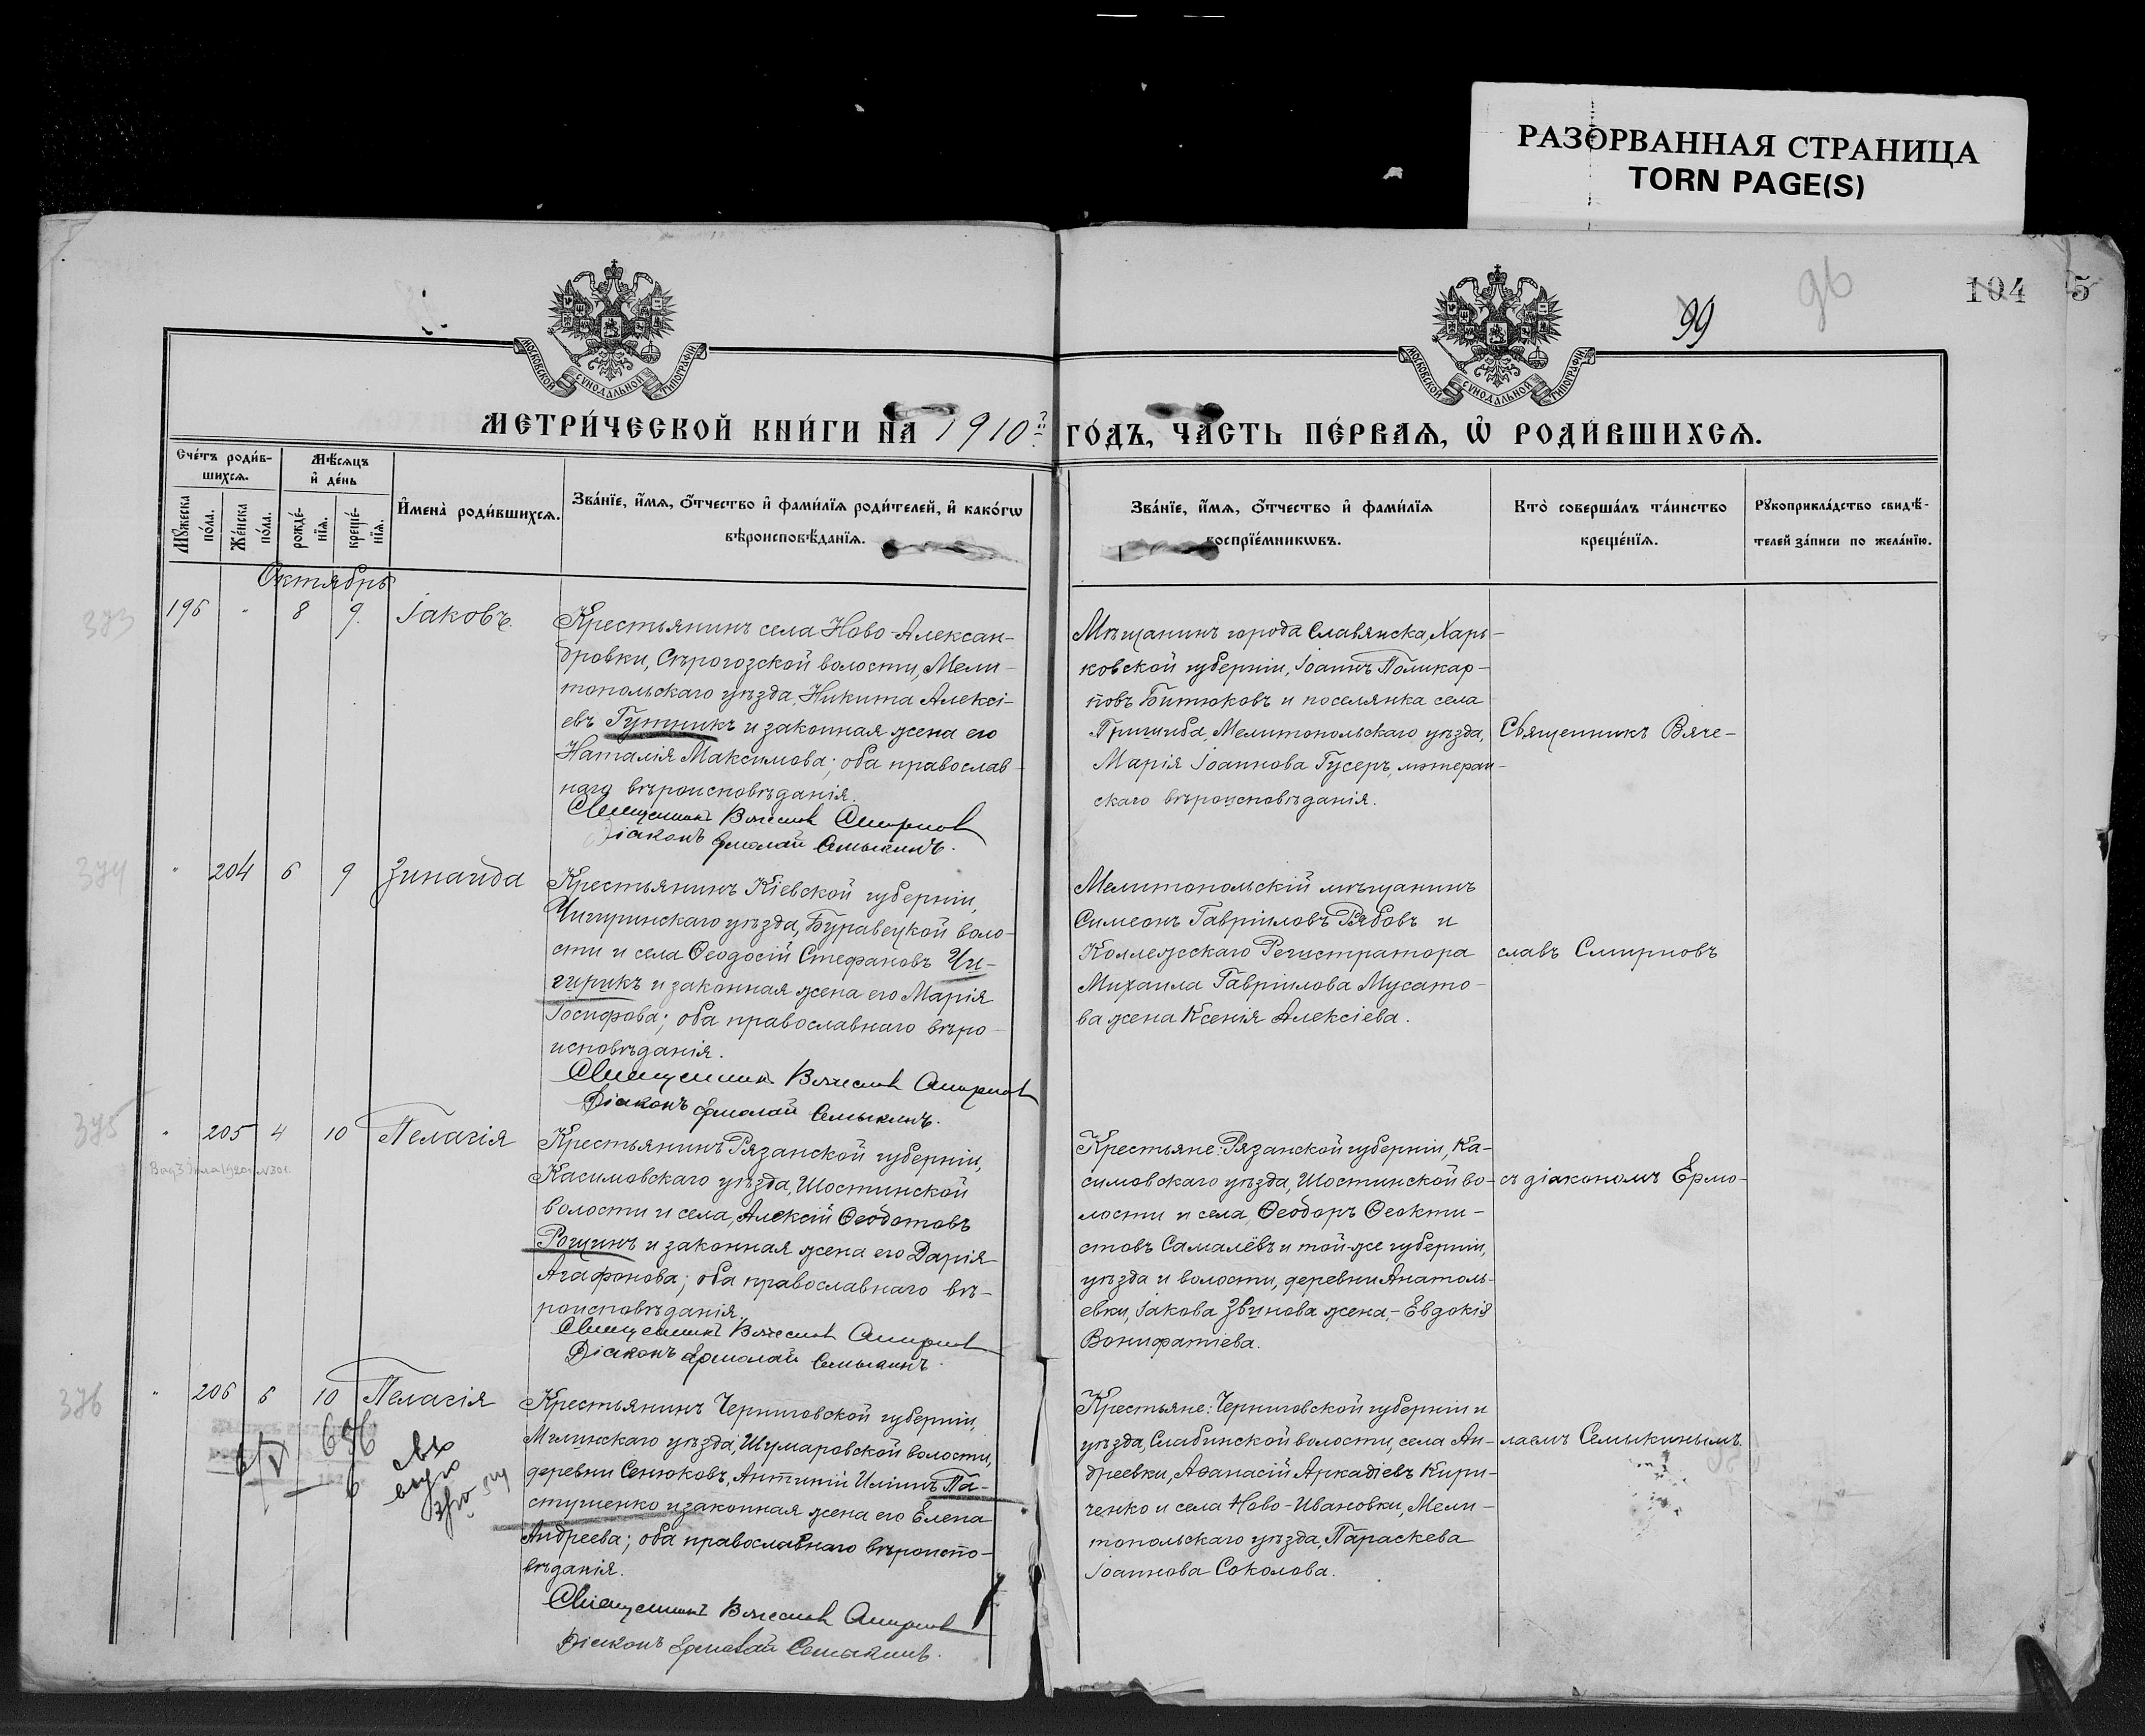 РАЗОРВАННАЯ СТРАНИЦА
TORN PAGE(S)
99
96
104
5
МОСКОВСКОЙ СУНОДАЛЬНОЙ ТИПОГРАФІИ
МОСКОВСКОЙ СУНОДАЛЬНОЙ ТИПОГРАФІИ
МЕТРИ́ЧЕСКОЙ КНИ́ГИ НА 1910й ГО́ДЪ, ЧА́СТЬ ПЕ́РВАѦ, Ѡ҆ РОДИ́ВШИХСѦ.
Сче́тъ роди́в-
шихсѧ.
Мꙋжеска по́ла.
Же́нска по́ла.
Мѣ́сѧцъ
и҆ де́нь
рожде́-
нїѧ.
креще́-
нїѧ.
И҆мена̀ роди́вшихсѧ.
Зва́нїе, и҆́мѧ, ѻ҆́тчество и҆ фами́лїѧ роди́телей, и҆ како́гѡ
вѣроисповѣ́данїѧ.
Зва́нїе, и҆́мѧ, ѻ҆́тчество и҆ фами́лїѧ
воспрїе́мникѡвъ.
Кто̀ соверша́лъ та́инство
креще́нїѧ.
Рꙋкоприкла́дство свидѣ́-
телей за́писи по жела́нїю.
Октябрь
373
196 " 8 9. Іаковъ.
Крестьянинъ села Ново-Алексан-
дровки, Сѣрогозской волости, Мели-
топольскаго уѣзда, Никита Алексі-
евъ Гутникъ и законная жена его
Наталія Максимова; оба православ-
наго вѣроисповѣданія.
Священникъ Вячеславъ Смирновъ
Діаконъ Ермолай Семыкинъ.
Мѣщанинъ города Славянска, Харь-
ковской губерніи, Іоаннъ Поликар-
повъ Битюковъ и поселянка села
Пришиба, Мелитопольскаго уѣзда,
Марія Іоаннова Гусеръ, лютеран-
скаго вѣроисповѣданія.
Священникъ Вяче-
374
" 204 6 9 Зинаида
Крестьянинъ Кіевской губерніи,
Чигиринскаго уѣзда, Буравецкой воло-
сти и села Ѳеодосій Стефановъ Чи-
гирикъ и законная жена его Марія
Іосифова; оба православнаго вѣро-
исповѣданія.
Священникъ Вячеславъ Смирновъ
Діаконъ Ермолай Семыкинъ.
Мелитопольскій мѣщанинъ
Симеонъ Гавріиловъ Рябовъ и
Коллежскаго Регистратора
Михаила Гавріилова Мусато-
ва жена Ксенія Алексіева.
славъ Смирновъ
375
" 205 4 10 Пелагія
Крестьянинъ Рязанской губерніи,
Касимовскаго уѣзда, Шостинской
волости и села, Алексій Ѳеодотовъ
Рощинъ и законная жена его Дарія
Агафонова; оба православнаго вѣ-
роисповѣданія.
Священникъ Вячеславъ Смирновъ
Діаконъ Ермолай Семыкинъ.
Крестьяне: Рязанской губерніи, Ка-
симовскаго уѣзда, Шостинской во-
лости и села, Ѳеодоръ Ѳеокти-
стовъ Самалёвъ и той-же губерніи,
уѣзда и волости, деревни Анатоль-
евки, Іакова Звинова жена,- Евдокія
Вонифатіева.
съ діакономъ Ермо-
376
" 206 6 10 Пелагія
656
6
Крестьянинъ Черниговской губерніи,
Мглинскаго уѣзда, Шумаровской волости,
деревни Сенюковъ, Антипій Иліинъ Па-
стушенко и законная жена его Елена
Андреева; оба православнаго вѣроиспо-
вѣданія.
Священникъ Вячеславъ Смирновъ
Діаконъ Ермолай Семыкинъ.
Крестьяне: Черниговской губерніи и
уѣзда, Слабинской волости, села Ан-
дреевки, Аѳанасій Аркадіевъ Кири-
ченко и села Ново-Ивановки, Мели-
топольскаго уѣзда, Параскева
Іоаннова Соколова.
лаемъ Семыкинымъ.